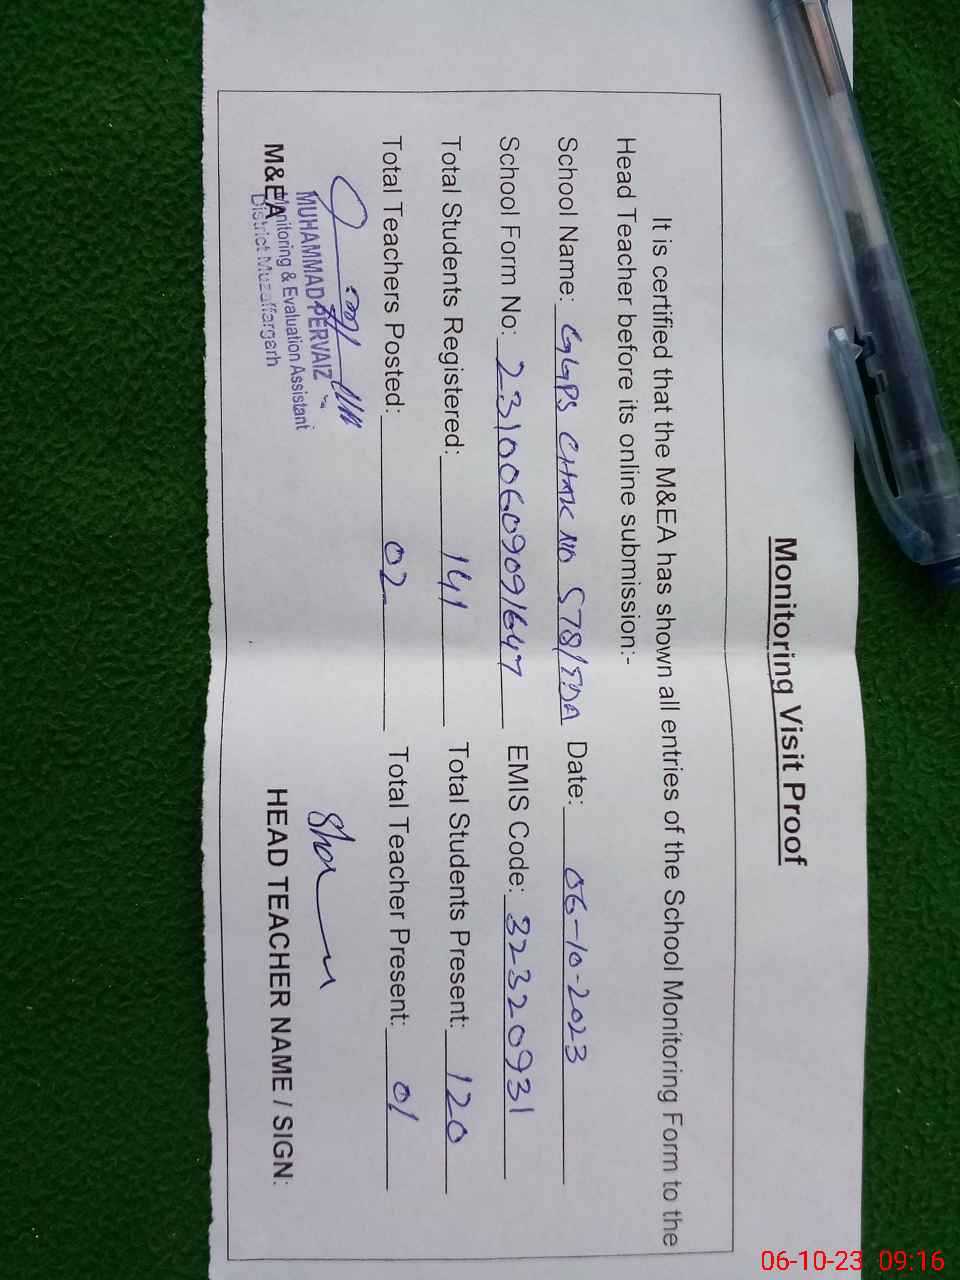 Monitoring Visit Proof
It is certified that the M&EA has shown all entries of the School Monitoring Form to the
Head Teacher before its online submission:-
School Name: GGPS CHAK NO 578/TDA Date: 06-10-2023
School Form No: 23100609091647 EMIS Code: 32320931
Total Students Registered: 141 Total Students Present: 120
Total Teachers Posted: 02 Total Teacher Present: 01
MUHAMMAD PERVAIZ
Monitoring & Evaluation Assistant
District Muzaffargarh
M&EA
HEAD TEACHER NAME / SIGN:
06-10-23 09:16